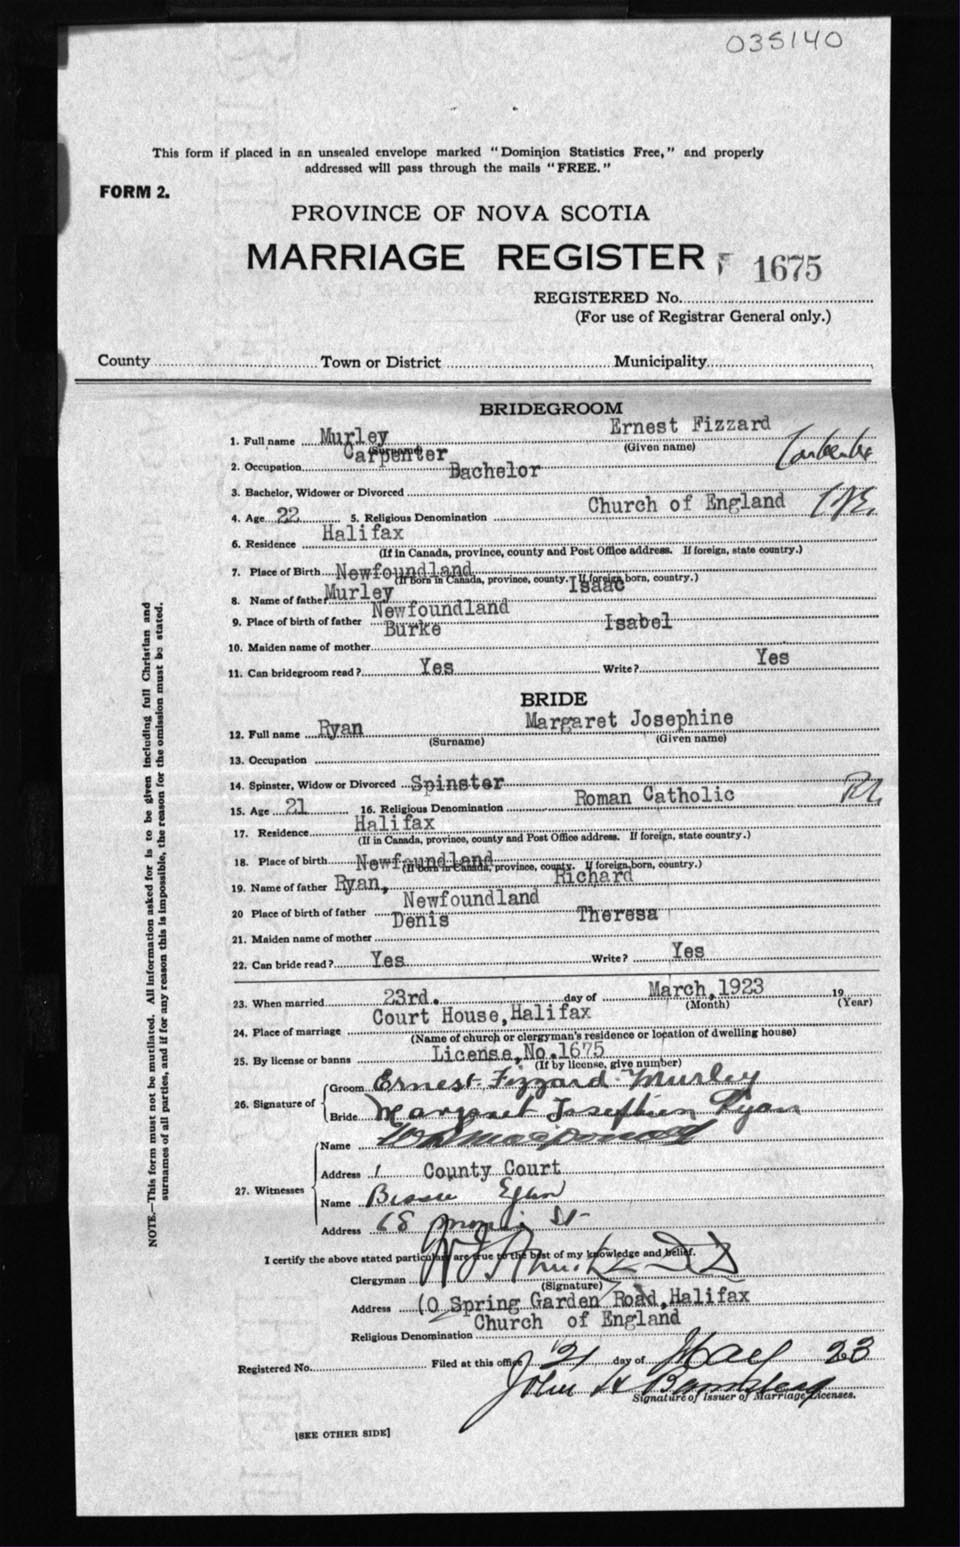 035140
This form if placed in an unsealed envelope marked "Dominion Statistics Free," and properly
addressed will pass through the mails "FREE."
FORM 2.
PROVINCE OF NOVA SCOTIA
MARRIAGE REGISTER 1675
REGISTERED No.
(For use of Registrar General only.)
County Town or District Municipality
BRIDEGROOM
1. Full name Murley Ernest Fizzard
(Surname) (Given name)
2. Occupation Carpenter
3. Bachelor, Widower or Divorced Bachelor
4. Age 22 5. Religious Denomination Church of England
6. Residence Halifax
(If in Canada, province, county and Post Office address. If foreign, state country.)
7. Place of Birth Newfoundland
(If born in Canada, province, county. If foreign born, country.)
8. Name of father Murley Isaac
9. Place of birth of father Newfoundland
10. Maiden name of mother Burke Isabel
11. Can bridegroom read? Yes Write? Yes
BRIDE
12. Full name Ryan Margaret Josephine
(Surname) (Given name)
13. Occupation
14. Spinster, Widow or Divorced Spinster
15. Age 21 16. Religious Denomination Roman Catholic
17. Residence Halifax
(If in Canada, province, county and Post Office address. If foreign, state country.)
18. Place of birth Newfoundland
(If born in Canada, province, county. If foreign born, country.)
19. Name of father Ryan, Richard
20 Place of birth of father Newfoundland
21. Maiden name of mother Denis Theresa
22. Can bride read? Yes Write? Yes
23. When married 23rd. day of March, 1923 19
(Month) (Year)
24. Place of marriage Court House, Halifax
(Name of church or clergyman's residence or location of dwelling house)
25. By license or banns License, No. 1675
(If by license, give number)
26. Signature of
Groom Ernest Fizzard Murley
Bride Margaret Josephien Ryan
27. Witnesses
Name
Address County Court
Name Bessie Egan
Address 68 St
I certify the above stated particulars are true to the best of my knowledge and belief.
Clergyman
(Signature)
Address Spring Garden Road, Halifax
Religious Denomination Church of England
Registered No. Filed at this office 21 day of May 23
John H
Signature of Issuer of Marriage Licenses.
[SEE OTHER SIDE]
NOTE.—This form must not be mutilated. All information asked for is to be given including full Christian and
surnames of all parties, and if for any reason this is impossible, the reason for the omission must be stated.